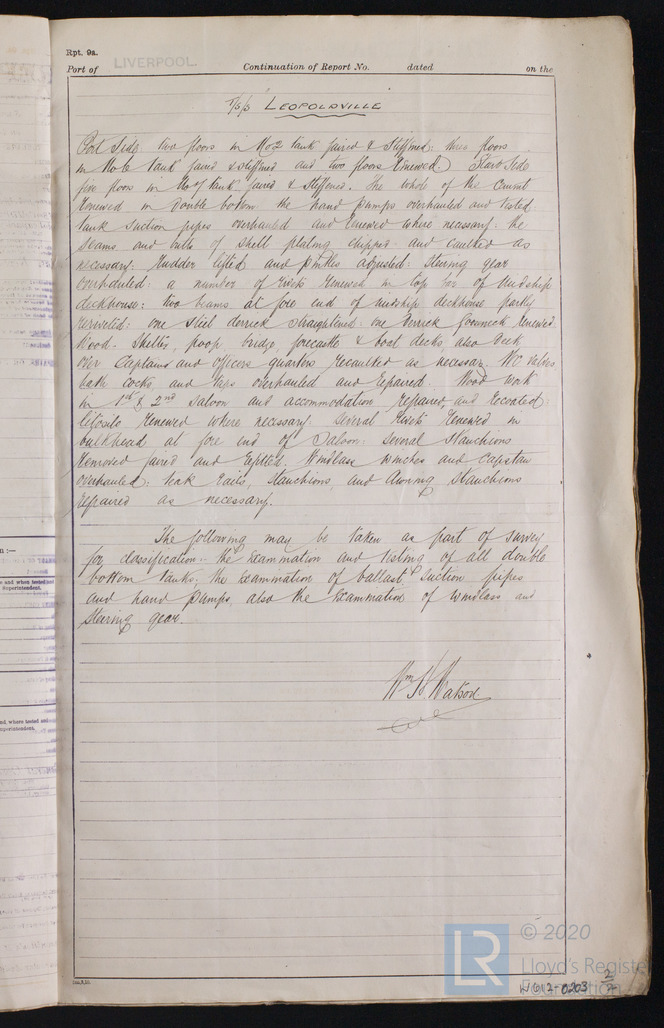 Rpt. 9a.
Port of LIVERPOOL. Continuation of Report No. dated on the
T/S/S "LEOPOLDVILLE
Port Side two floors in No 2 tank faired & stiffened: three floors
in No 6 tank faired & stiffened and two floors renewed.) Starb Side
five floors in No 7 tank faired & stiffened. The whole of the cement
renewed in double bottom the hand pumps overhauled and tested
tank suction pipes overhauled and renewed where necessary: the
seams and butts of shell plating chipped and caulked as
necessary: rudder lifted and pintles adjusted: steering gear
overhauled: a number of rivets renewed in top bar of midship
deckhouse: two beams at fore end of midship deckhouse partly
reriveted: one steel derrick straightened: one derrick gooseneck renewed
Wood. Shelter, poop bridge, forecastle & boat decks also deck
over Captains and officers quarters recaulked as necessary. WC valves
bath cocks and taps overhauled and repaired. Wood work
in 1st & 2nd Saloon and accommodation repaired, and decorated:
litosilo renewed where necessary: several rivets renewed in
bulkhead at fore end of Saloon: several stanchions
removed faired and refitted. Windlass winches and capstan
overhauled: teak rails, stanchions and awning stanchions
repaired as necessary.
The following may be taken as part of survey
for classification:- the examination and testing of all double
bottom tanks; the examination of ballast suction pipes
and hand pumps, also the examination of windlass and
steering gear.
Wm H. Watson
n:—
and when tested
Superintendent.
nd, where tested and
uperintendent.
LR
© 2020
Lloyd's Register
Foundation
W612-0203 2/2